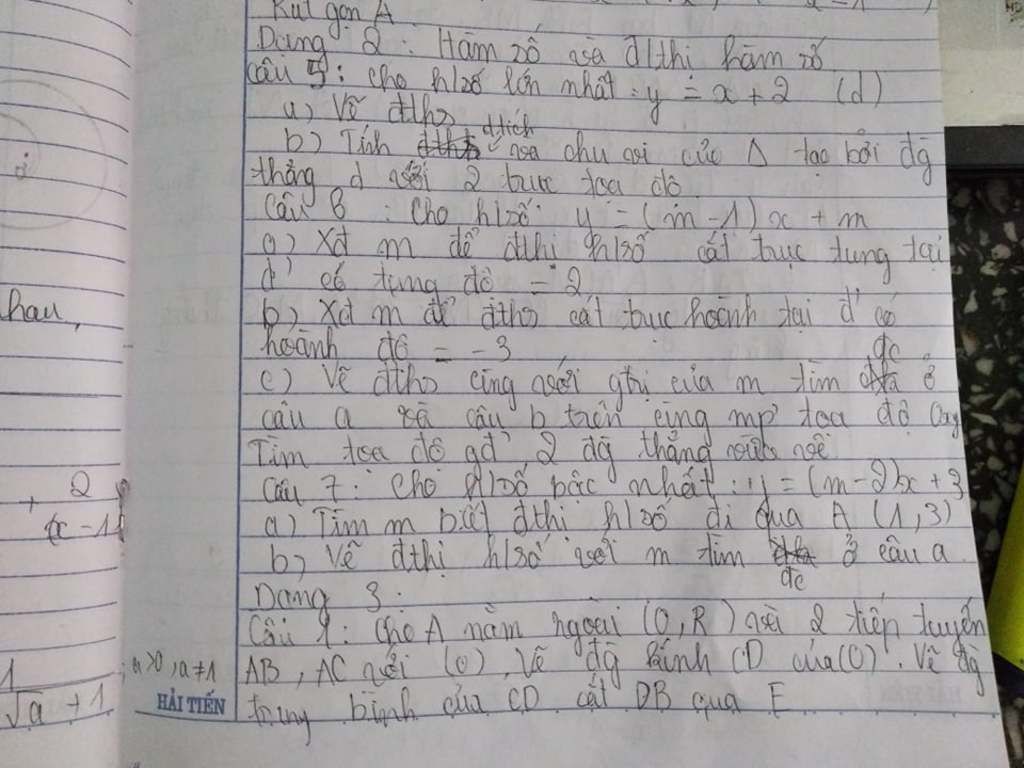 Rút gọn A
Dạng 2 : Hàm số và đ/thị hàm số
Câu 5 : Cho h/số lớn nhất : y = x + 2 (d)
a) Vẽ đths
b) Tính d.tích và chu vi của Δ tạo bởi đg
thẳng d với 2 trục tọa độ
Câu 6 : Cho h/số y = (m - 1) x + m
a) Xđ m để đthị h/số cắt trục tung tại
đ' có tung độ = 2
b) Xđ m để đths cắt trục hoành tại đ' có
hoành độ = -3
c) Vẽ đths cùng với gtrị của m tìm đc ở
câu a và câu b trên cùng mp tọa độ Oxy
Tìm tọa độ gđ' 2 đg thẳng vừa vẽ
Câu 7 : Cho h/số bậc nhất : y = (m - 2)x + 3
a) Tìm m biết đthị h/số đi qua A (1, 3)
b) Vẽ đthị h/số với m tìm đc ở câu a
Dạng 3 :
Câu : Cho A nằm ngoài (O, R) với 2 tiếp tuyến
AB, AC với (O), Vẽ đg kính CD của (O). Vẽ đg
trung bình của CD cắt DB qua E
hau,
+ 2
x - 1
1
√a + 1
; a > 0, a ≠ 1
HẢI TIẾN